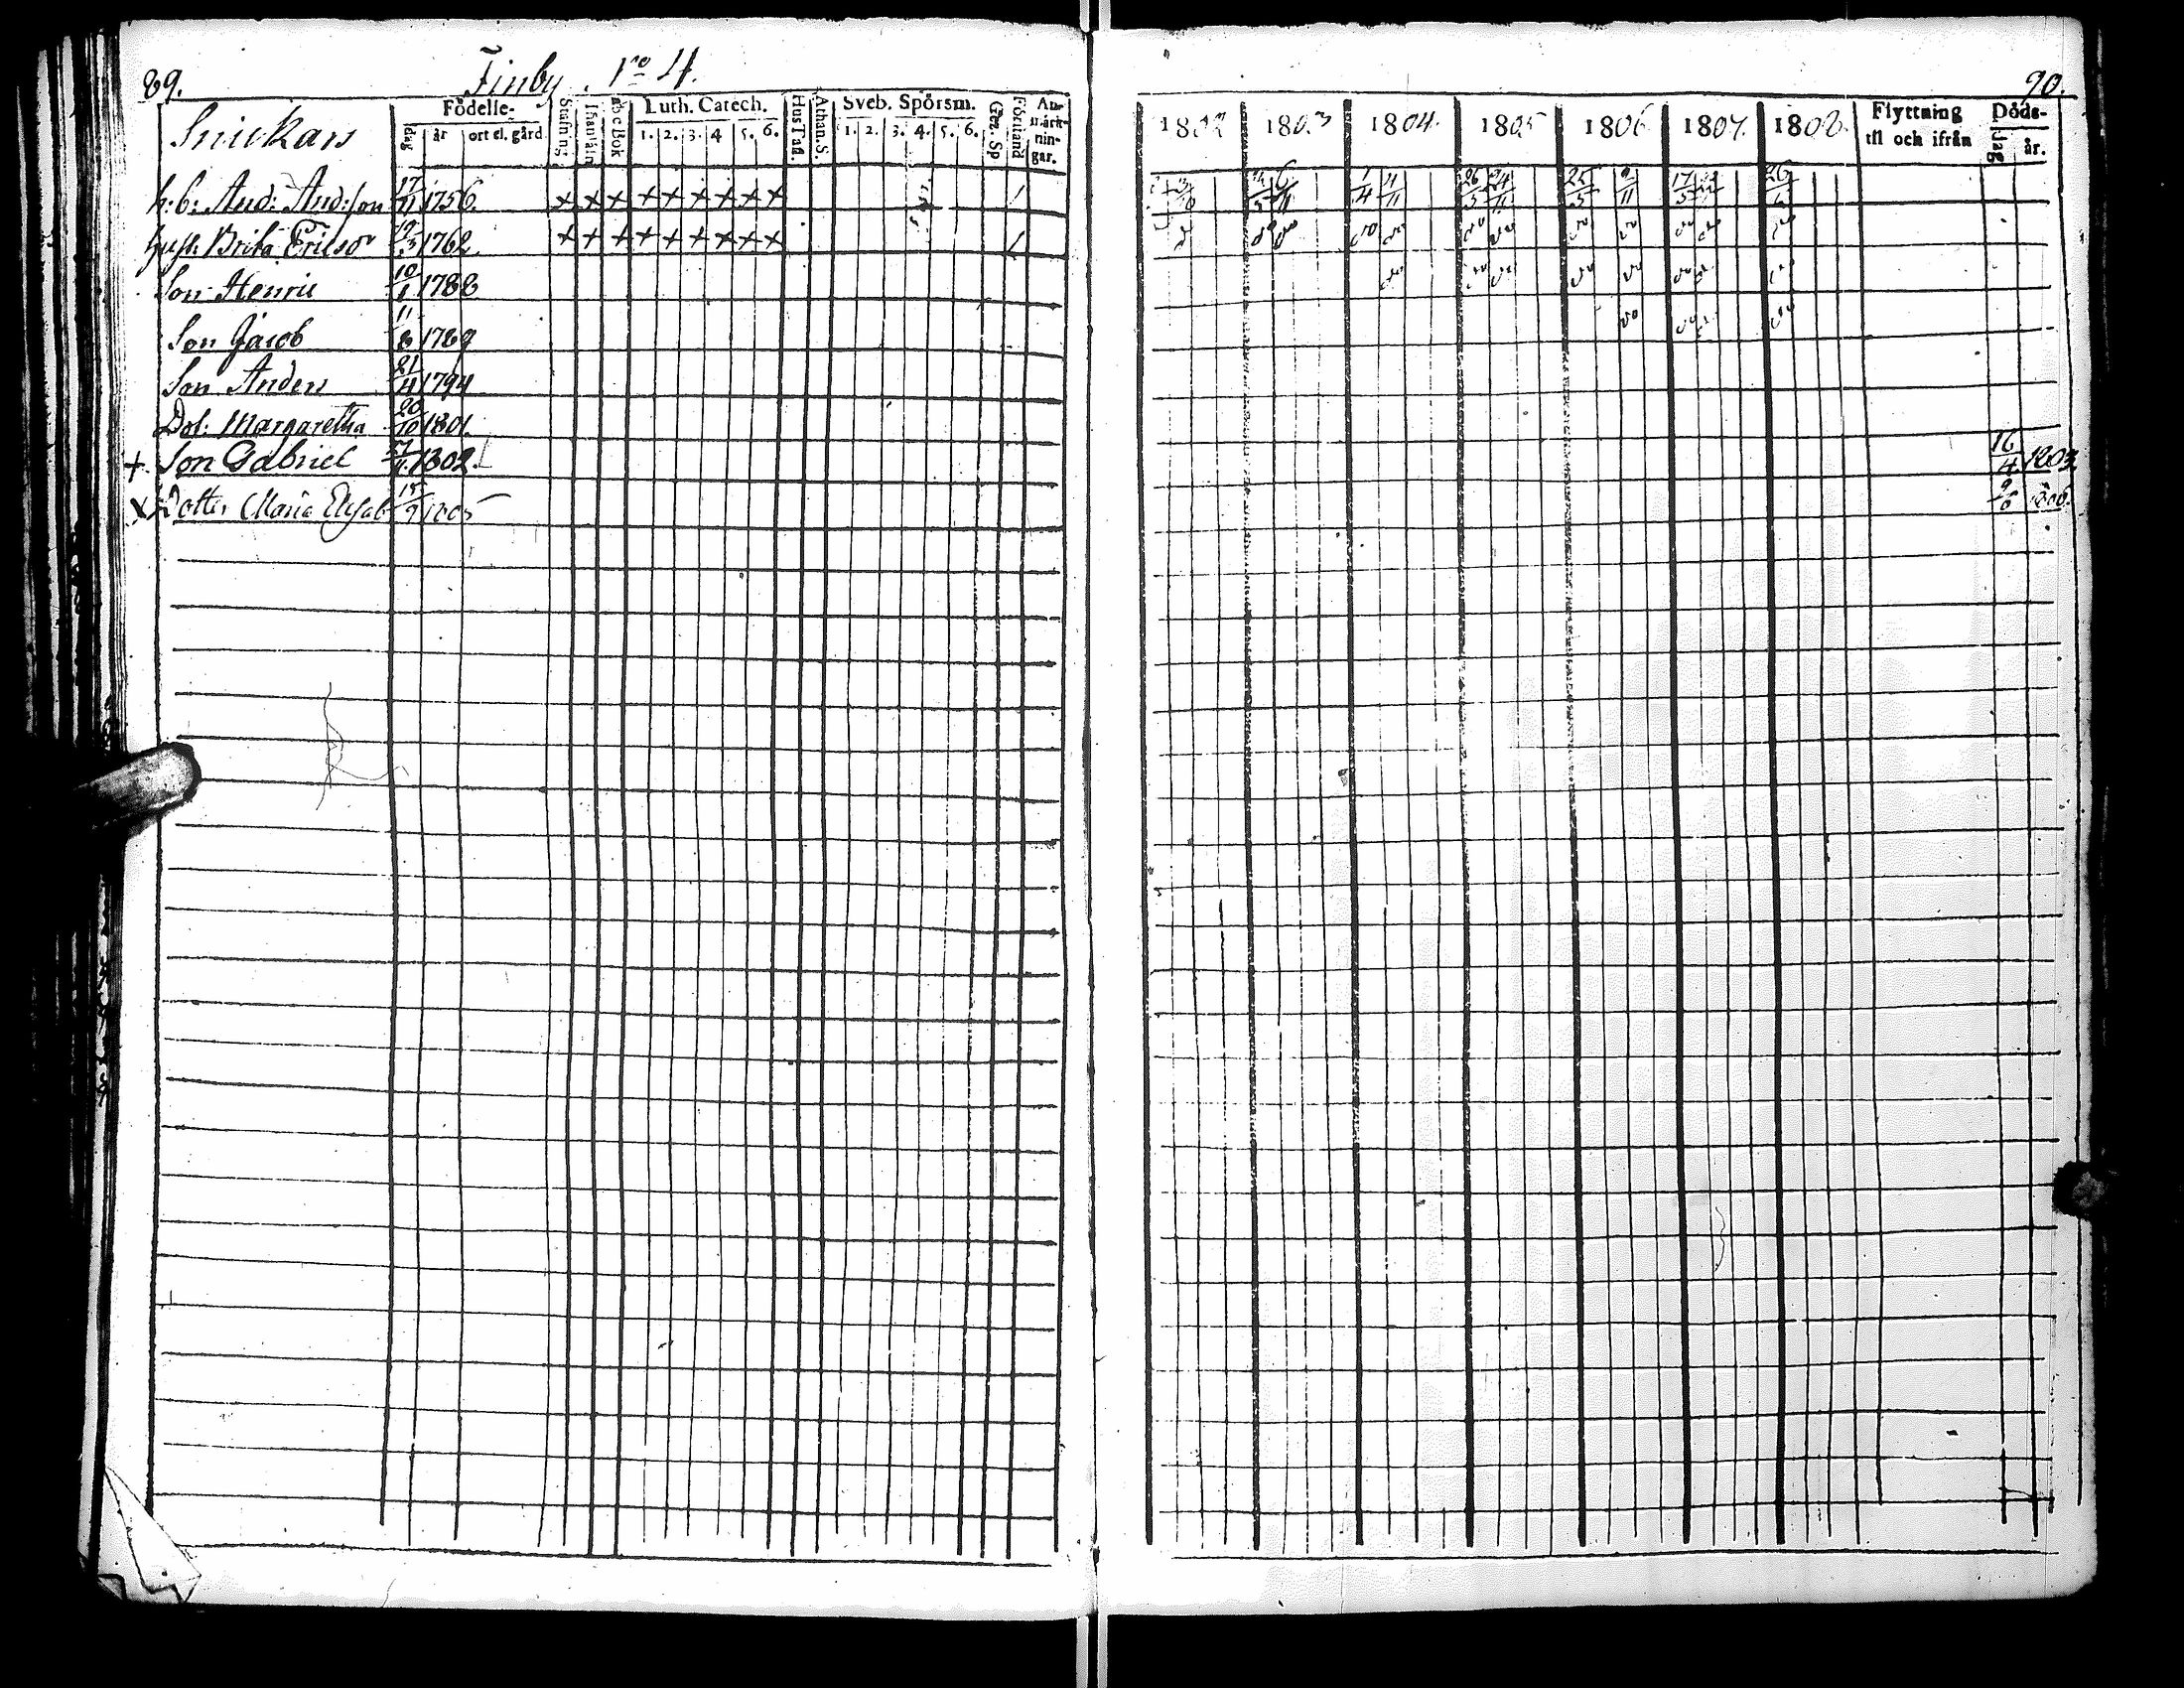 89.
Finby. No 4.
Snickars
Födelse-
dag
år
ort el. gård.
Stafning
Innanläsn
abc Bok
Luth. Catech.
1. 2. 3. 4 5. 6.
Hus Tafl.
Athan. S.
Sveb. Spörsm.
1. 2. 3. 4. 5. 6.
Gez. Sp
Förstånd
Anmärkningar.
h: b: And: And:son 17/11 1756. × × × × × × × × ×
hust: Brita Ericsdr 19/3 1762 × × × × × × × × ×
Son Henric 10/1 1788
Son Jacob 11/8 1789
Son Anders 21/4 1794
Dot: Margaretha 20/10 1801.
+ Son Gabriel 1802.
× Dotter Maria Elisab 15/9 1805
90.
1802 1803 1804. 1805 1806 1807. 1808.
Flyttning
til och ifrån
Döds-
dag
år.
6/11 1/4 11/11 26/5 24/11 25/5 9/11 17/5 26/6
16/4 1803
9/6 1806.